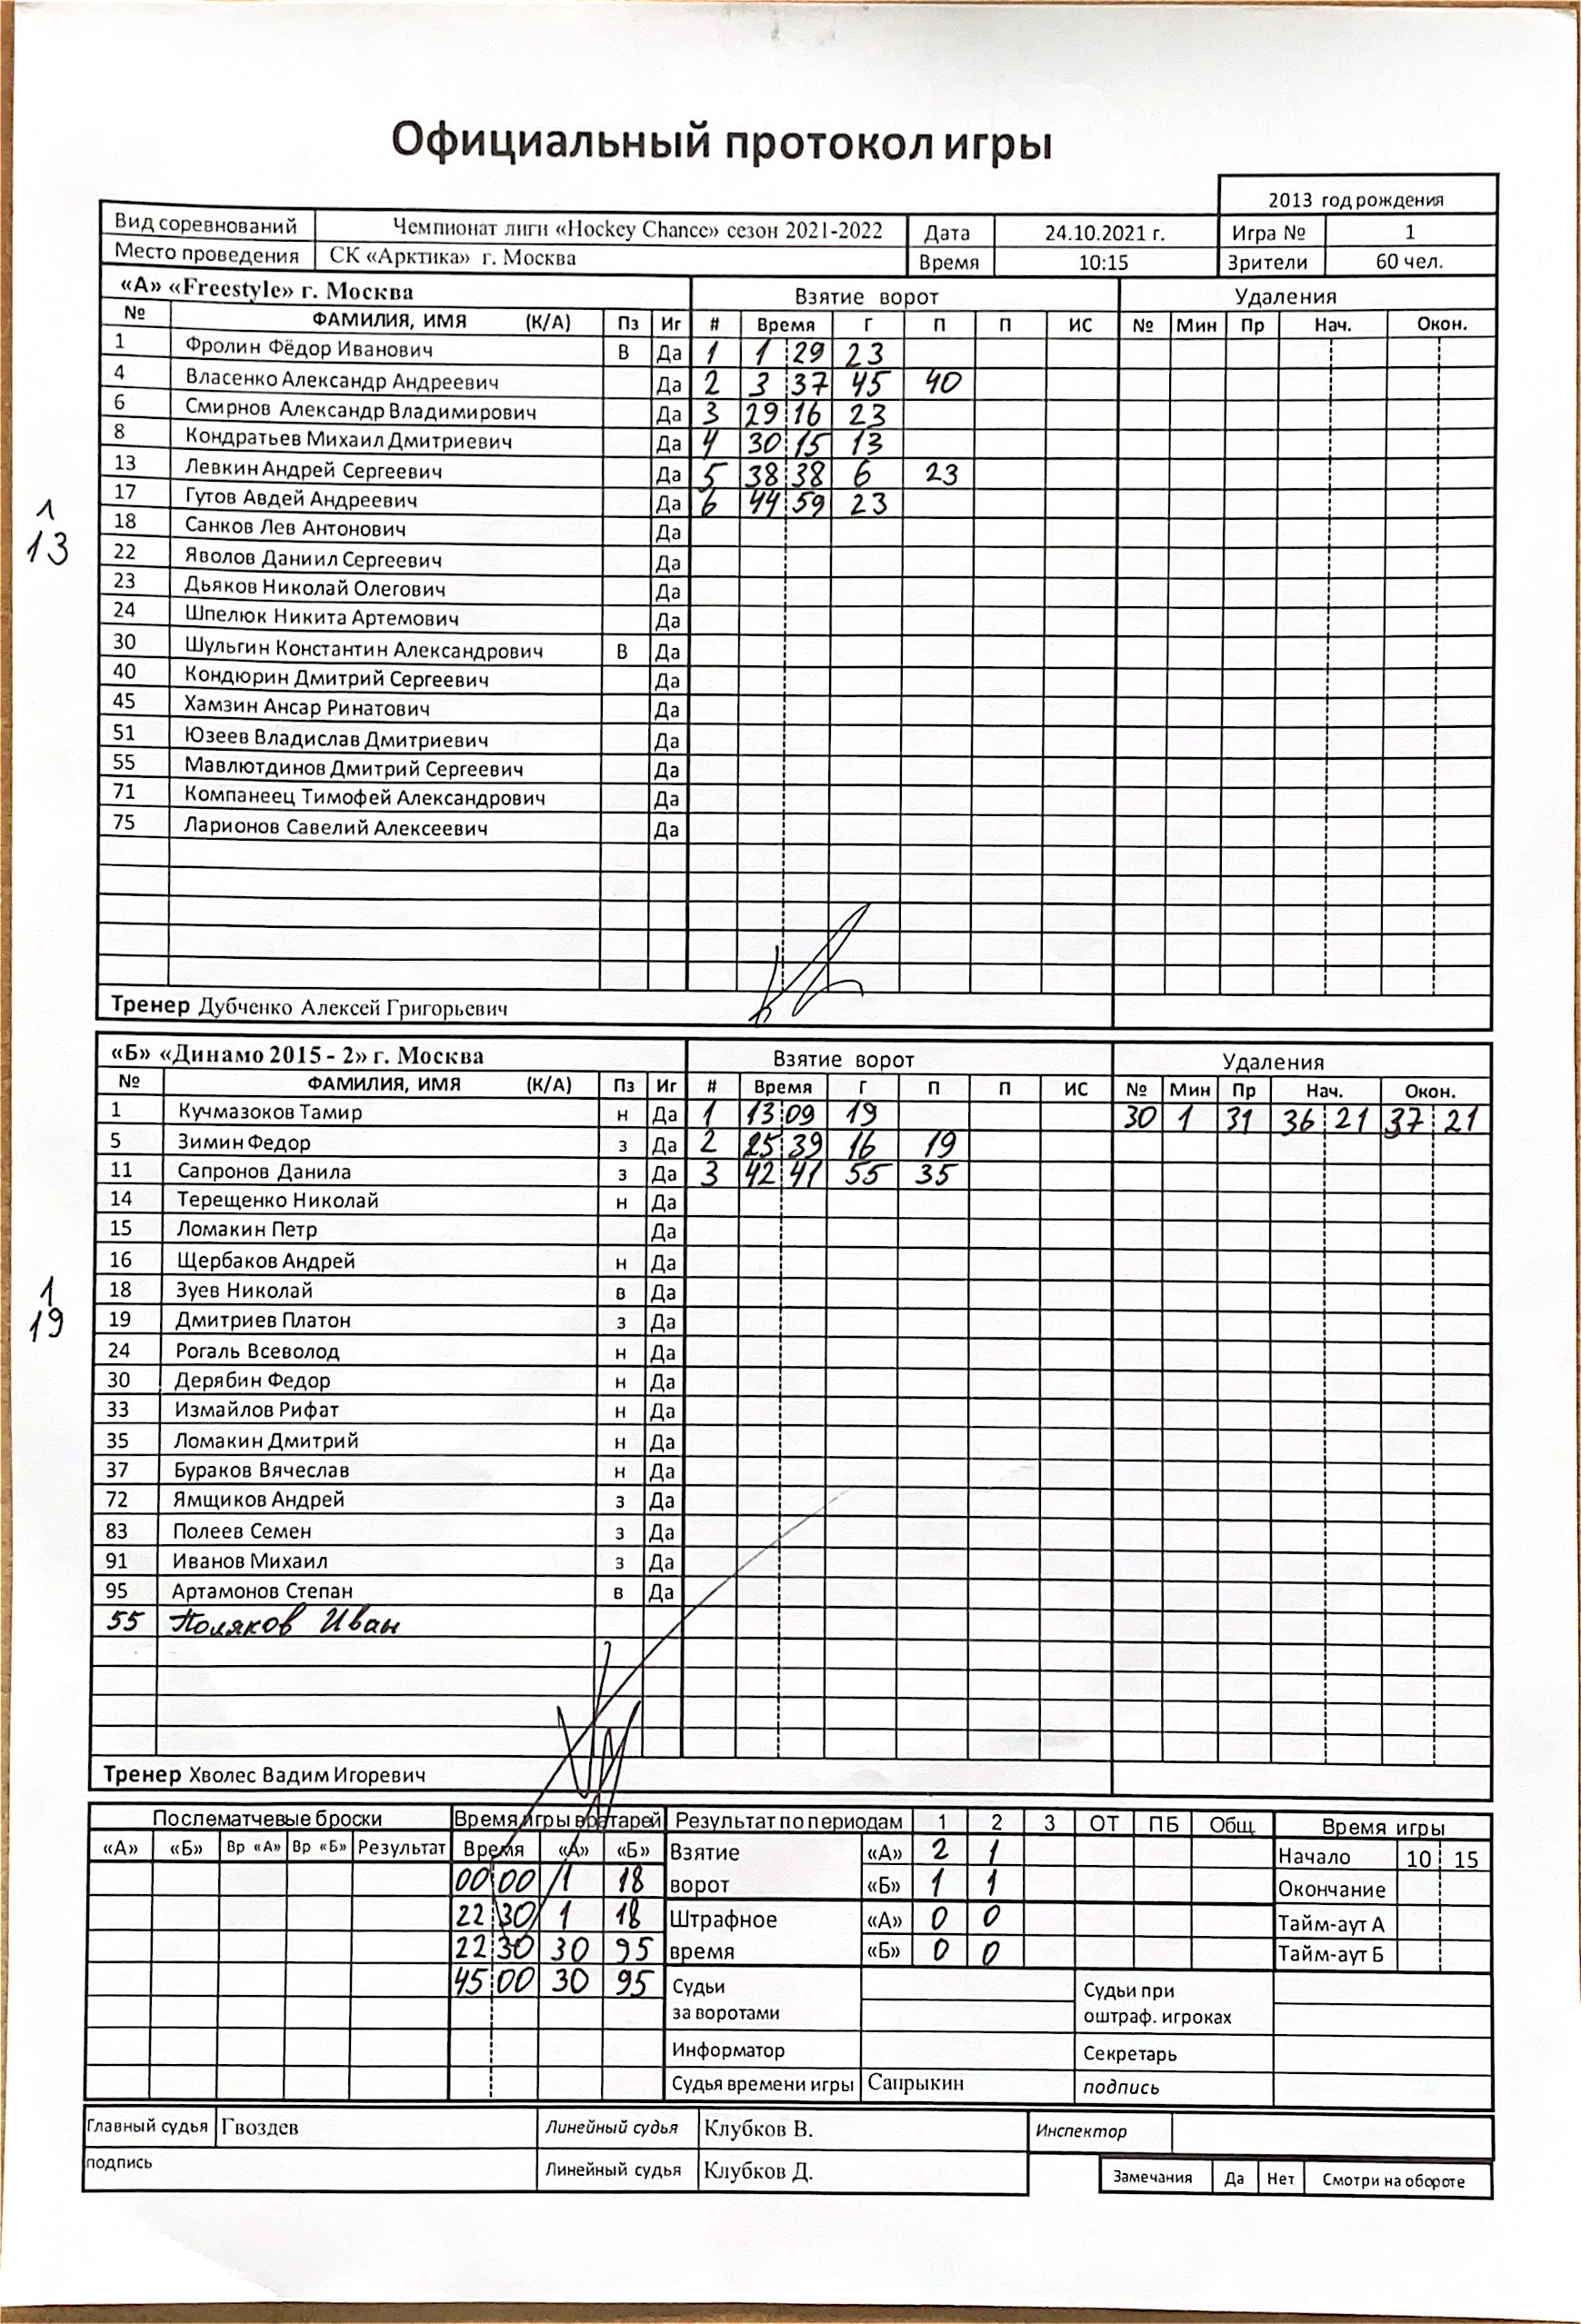 Официальный протокол игры
2013 год рождения
Вид соревнований Чемпионат лиги «Hockey Chance» сезон 2021-2022 Дата 24.10.2021 г. Игра № 1
Место проведения СК «Арктика» г. Москва Время 10:15 Зрители 60 чел.
«А» «Freestyle» г. Москва Взятие ворот Удаления
№ ФАМИЛИЯ, ИМЯ (К/А) Пз Иг # Время Г П П ИС № Мин Пр Нач. Окон.
1 Фролин Фёдор Иванович В Да 1 1 29 23
4 Власенко Александр Андреевич Да 2 3 37 45 40
6 Смирнов Александр Владимирович Да 3 29 16 23
8 Кондратьев Михаил Дмитриевич Да 4 30 15 13
13 Левкин Андрей Сергеевич Да 5 38 38 6 23
17 Гутов Авдей Андреевич Да 6 44 59 23
1
13
18 Санков Лев Антонович Да
22 Яволов Даниил Сергеевич Да
23 Дьяков Николай Олегович Да
24 Шпелюк Никита Артемович Да
30 Шульгин Константин Александрович В Да
40 Кондюрин Дмитрий Сергеевич Да
45 Хамзин Ансар Ринатович Да
51 Юзеев Владислав Дмитриевич Да
55 Мавлютдинов Дмитрий Сергеевич Да
71 Компанеец Тимофей Александрович Да
75 Ларионов Савелий Алексеевич Да
Тренер Дубченко Алексей Григорьевич
«Б» «Динамо 2015 - 2» г. Москва Взятие ворот Удаления
№ ФАМИЛИЯ, ИМЯ (К/А) Пз Иг # Время Г П П ИС № Мин Пр Нач. Окон.
1 Кучмазоков Тамир н Да 1 13 09 19 30 1 31 36 21 37 21
5 Зимин Федор з Да 2 25 39 16 19
11 Сапронов Данила з Да 3 42 41 55 35
14 Терещенко Николай н Да
15 Ломакин Петр Да
16 Щербаков Андрей н Да
18 Зуев Николай в Да
1
19
19 Дмитриев Платон з Да
24 Рогаль Всеволод н Да
30 Дерябин Федор н Да
33 Измайлов Рифат н Да
35 Ломакин Дмитрий н Да
37 Бураков Вячеслав н Да
72 Ямщиков Андрей з Да
83 Полеев Семен з Да
91 Иванов Михаил з Да
95 Артамонов Степан в Да
55 Поляков Иван
Тренер Хволес Вадим Игоревич
Послематчевые броски Время игры вратарей Результат по периодам 1 2 3 ОТ ПБ Общ. Время игры
«А» «Б» Вр «А» Вр «Б» Результат Время «А» «Б» Взятие «А» 2 1 Начало 10 15
00 00 1 18 ворот «Б» 1 1 Окончание
22 30 1 18 Штрафное «А» 0 0 Тайм-аут А
22 30 30 95 время «Б» 0 0 Тайм-аут Б
45 00 30 95 Судьи Судьи при
за воротами оштраф. игроках
Информатор Секретарь
Судья времени игры Сапрыкин подпись
Главный судья Гвоздев Линейный судья Клубков В. Инспектор
подпись Линейный судья Клубков Д. Замечания Да Нет Смотри на обороте